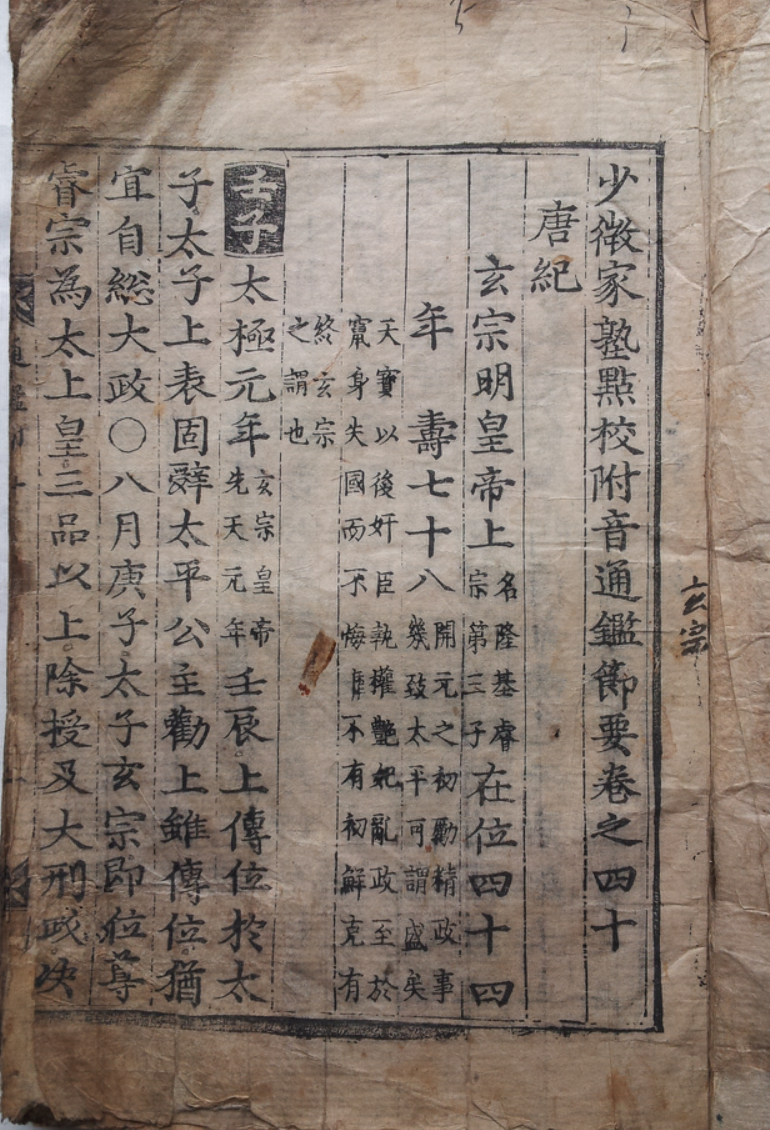 少微家塾點校附音通鑑節要卷之四十
唐紀
玄宗明皇帝上名隆基睿宗第三子在位四十四
年壽七十八開元之初勵精政事幾致太平可謂盛矣
天寶以後奸臣執權艶妃亂政至於竄身失國而不悔 不有初鮮克有
終玄宗之謂也
壬子太極元年玄宗皇帝先天元年壬辰上傳位於太
子太子上表固辭太平公主勸上雖傳位猶
宜自總大政〇八月庚子太子玄宗即位尊
睿宗為太上皇三品以上除授及大刑政決
玄宗